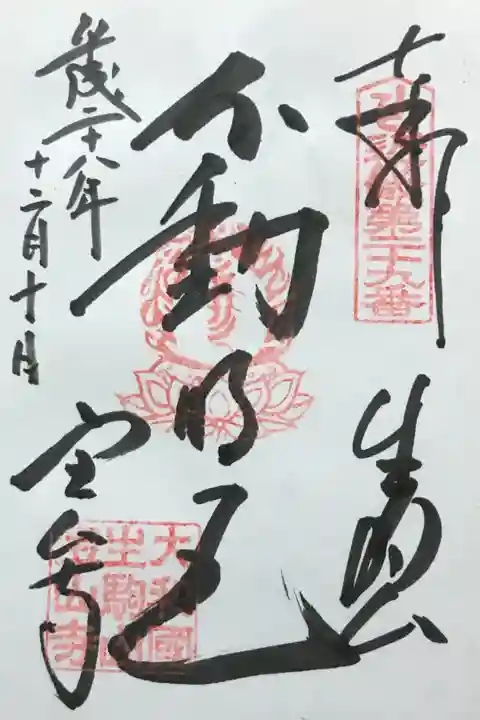 奉拝
生駒山
不動明王
平成二十八年
十二月十日
宝山寺
大和國
生駒山
宝山寺